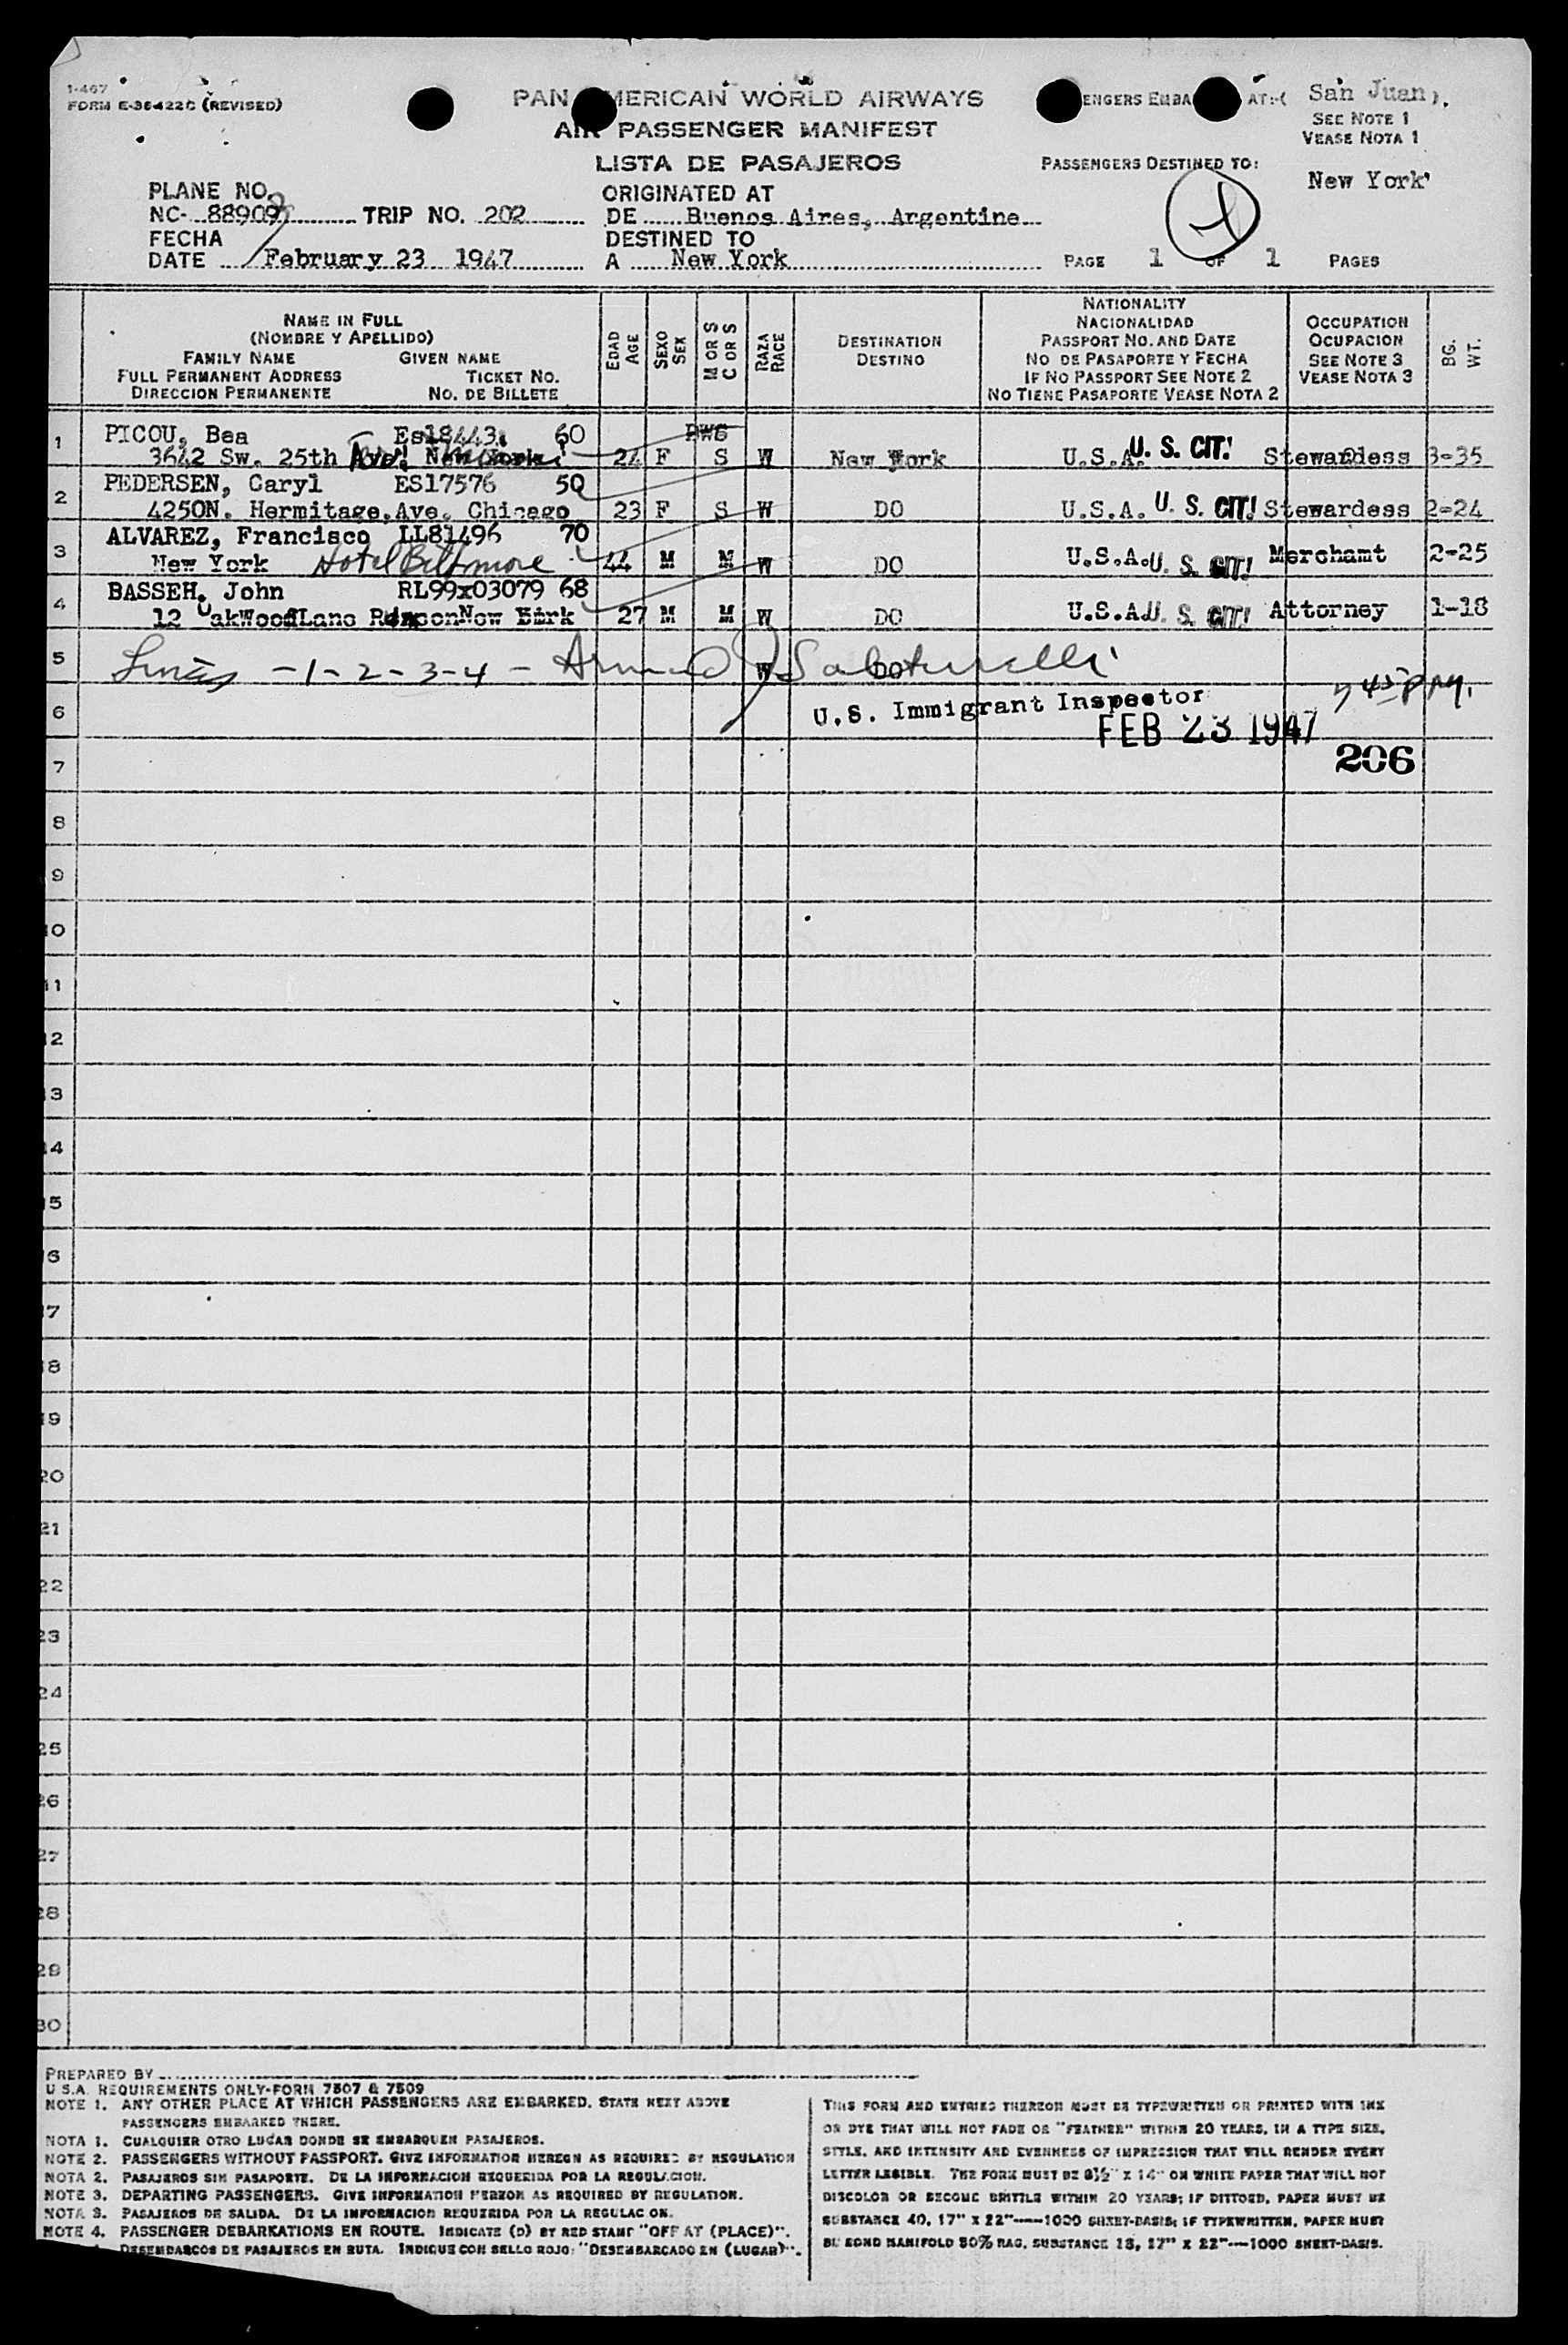 1-467
FORM E-36422C (REVISED)
PAN AMERICAN WORLD AIRWAYS
AIR PASSENGER MANIFEST
LISTA DE PASAJEROS
ENGERS EMBA AT:-( San Juan).
SEE NOTE 1
VEASE NOTA 1
PASSENGERS DESTINED TO:
New York
PLANE NO.
NC- 88909 TRIP NO. 202
FECHA
DATE February 23 1947
ORIGINATED AT
DE Buenos Aires, Argentine
DESTINED TO
A New York
PAGE 1 OF 1 PAGES
NAME IN FULL
(NOMBRE Y APELLIDO)
FAMILY NAME GIVEN NAME
FULL PERMANENT ADDRESS TICKET NO.
DIRECCION PERMANENTE NO. DE BILLETE
EDAD
AGE
SEXO
SEX
M OR S
C OR S
RAZA
RACE
DESTINATION
DESTINO
NATIONALITY
NACIONALIDAD
PASSPORT NO. AND DATE
NO DE PASAPORTE Y FECHA
IF NO PASSPORT SEE NOTE 2
NO TIENE PASAPORTE VEASE NOTA 2
OCCUPATION
OCUPACION
SEE NOTE 3
VEASE NOTA 3
BG.
WT.
1 PICOU, Bea Es18443 60
3642 Sw. 25th 24 F S W New York U.S.A. U. S. CIT. Stewardess 3-35
2 PEDERSEN, Caryl ES17576 50
4250N. Hermitage,Ave. Chicago 23 F S W DO U.S.A. U. S. CIT! Stewardess 2-24
3 ALVAREZ, Francisco LL81496 70
New York Hotel Biltmore 44 M M W DO U.S.A. U. S. CIT! Merchamt 2-25
4 BASSEH, John RL99x03079 68
12 OakWoodLane 27 M M W DO U.S.A. U. S. CIT! Attorney 1-18
5 Lines -1-2-3-4- W DO
6 U.S. Immigrant Inspector 7 45 P.M.
FEB 23 1947
7 206
8
9
10
11
12
13
14
15
16
17
18
19
20
21
22
23
24
25
26
27
28
29
30
PREPARED BY
U S.A. REQUIREMENTS ONLY-FORM 7507 & 7509
NOTE 1. ANY OTHER PLACE AT WHICH PASSENGERS ARE EMBARKED. STATE NEXT ABOVE
PASSENGERS EMBARKED THERE.
NOTA 1. CUALQUIER OTRO LUGAR DONDE SE EMBARQUEN PASAJEROS.
NOTE 2. PASSENGERS WITHOUT PASSPORT. GIVE INFORMATION HEREON AS REQUIRED BY REGULATION
NOTA 2. PASAJEROS SIN PASAPORTE. DE LA INFORMACION REQUERIDA POR LA REGULACION.
NOTE 3. DEPARTING PASSENGERS. GIVE INFORMATION HEREON AS REQUIRED BY REGULATION.
NOTA 3. PASAJEROS DE SALIDA. DE LA INFORMACION REQUERIDA POR LA REGULAC ON.
NOTE 4. PASSENGER DEBARKATIONS EN ROUTE. INDICATE (D) BY RED STAMP "OFF AT (PLACE)".
DESEMBARCOS DE PASAJEROS EN RUTA. INDIQUE CON SELLO ROJO: "DESEMBARCADO EN (LUGAR)".
THIS FORM AND ENTRIES THEREON MUST BE TYPEWRITTEN OR PRINTED WITH INK
OR DYE THAT WILL NOT FADE OR "FEATHER" WITHIN 20 YEARS, IN A TYPE SIZE,
STYLE, AND INTENSITY AND EVENNESS OF IMPRESSION THAT WILL RENDER EVERY
LETTER LEGIBLE. THE FORM MUST BE 8½" X 14" ON WHITE PAPER THAT WILL NOT
DISCOLOR OR BECOME BRITTLE WITHIN 20 YEARS; IF DITTOED, PAPER MUST BE
SUBSTANCE 40, 17" X 22"----1000 SHEET-BASIS; IF TYPEWRITTEN, PAPER MUST
BE BOND MANIFOLD 50% RAG, SUBSTANCE 18, 17" X 22"---1000 SHEET-BASIS.